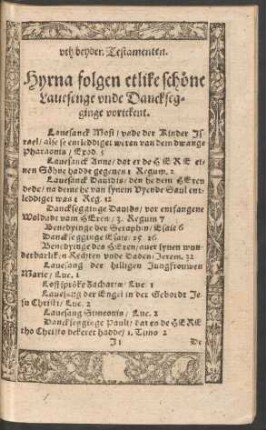 vth beyder Testamenten.
Hyrna folgen etlike schöne
Lauesenge vnde Danckseg-
ginge vortekent.
Lauesanck Mosi / vnde der Kinder Js
rael / alse se entleddiget weren van dem dwange
Pharaonis / Exod.
Lauesanck Anne / dat er de HERE ei-
nen Söhne hadde gegeuen 1 Regum.
Lauesanck Dauids / den he dem HEren
dede / na deme he van synem Vyende Saul ent-
leddiget was 2 Reg. 12
Danckseggginge Dauids / vor entfangene
Woldadt vam HEren / 3. Regum 7
Benedyinge der Seraphin / Esaie 6
Dancksegginge Esaie: 25 26
Benedyinge des HEren / auer synen wun-
derbarliken Rechten vnde Daden / Jerem. 32
Lauesang der hilligen Jungfrouwen
Marie / Luc. 1
Loffspröke Zacharie / Luc. 1
Lauesang der Engel in der Gebordt Je-
su Christi / Luc. 2
Lauesang Simeonis / Luc. 2
Dancksegginge Pauli / dat en de HERE
tho Christo bekeret hadde / 1. Timo 2
De